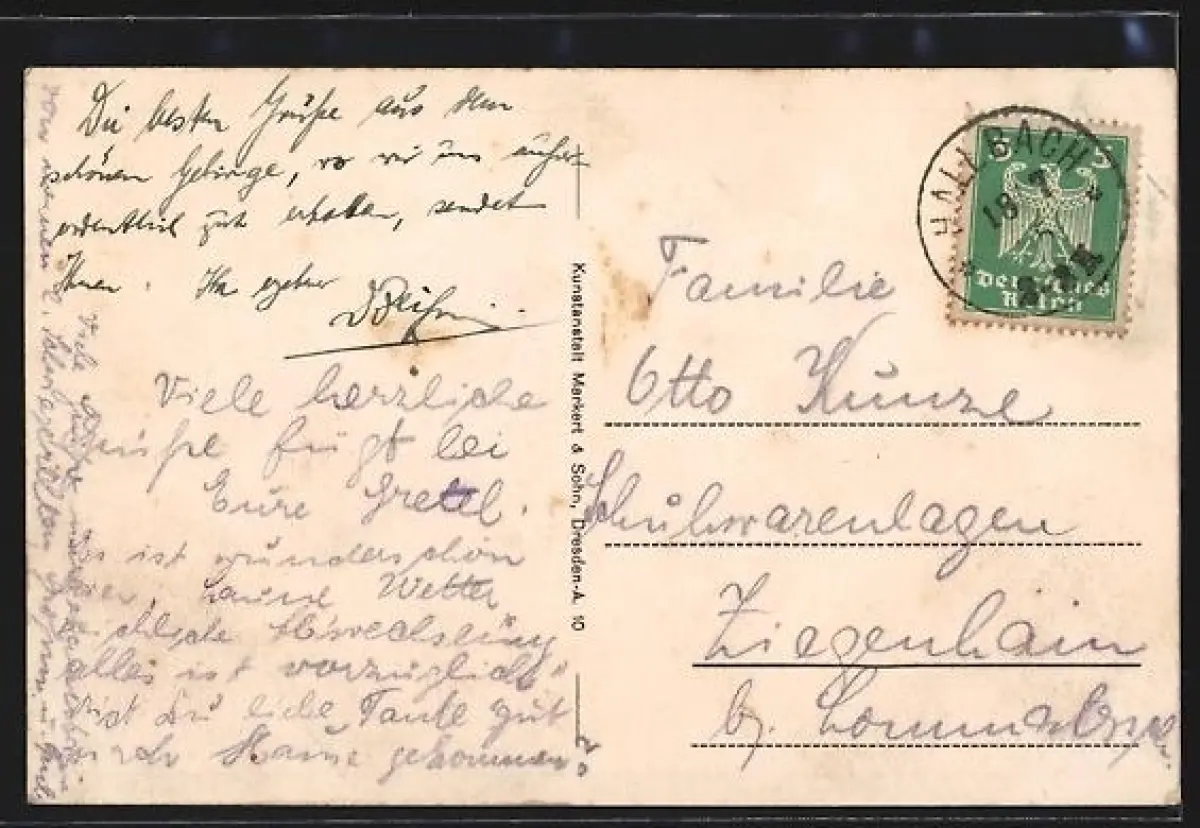 Die besten Grüße aus dem
schönen Gebirge, wo wir uns außer
ordentlich gut erholen, sendet
Ihnen. Ihr
Viele herzliche
Grüße fügt bei
Eure Gretel.
Es ist wunderschön
hier, Laune Wetter
Abwechslung
alles ist vorzüglich
Bist Du liebe Tante gut
nach Hause gekommen?
Viele Grüße
von meinen l. Schwiegereltern
Kunstanstalt Markert & Sohn, Dresden-A. 10
HALLBACH
18 7
5 5
Deutsches
Reich
Familie
Otto Kunze
Schuhwarenlagen
Ziegenhain
bz. Lommatzsch.